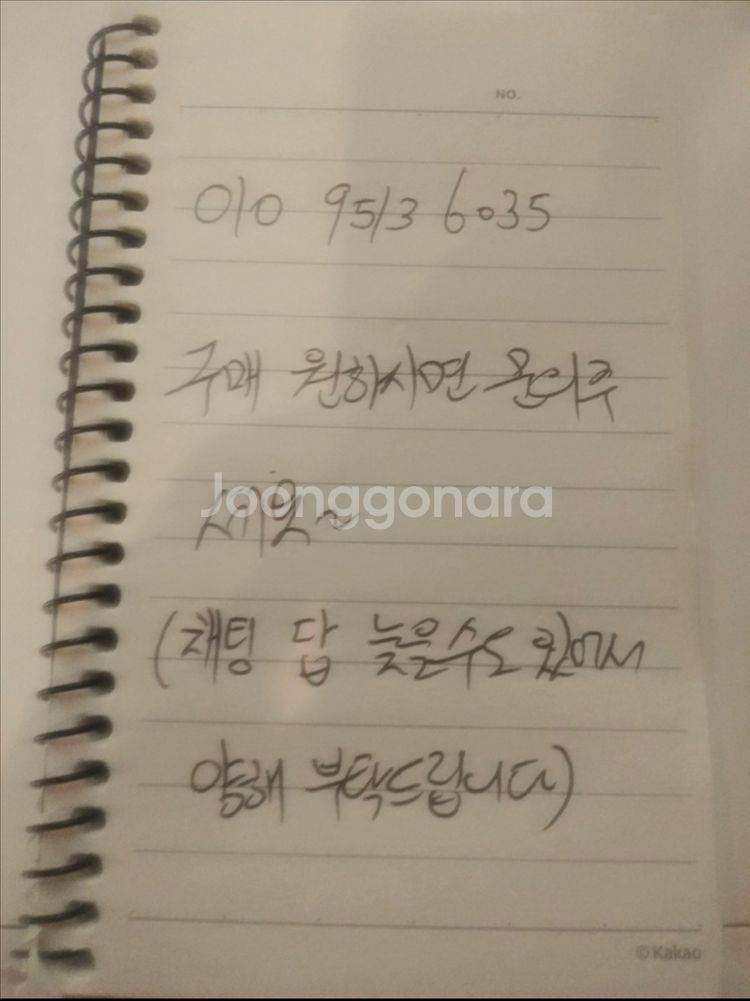 NO.
010 9513 6035
구매 원하시면 문의주
세요~
Joonggonara
(채팅 답 늦을수도 있어서
양해 부탁드립니다)
©Kakao